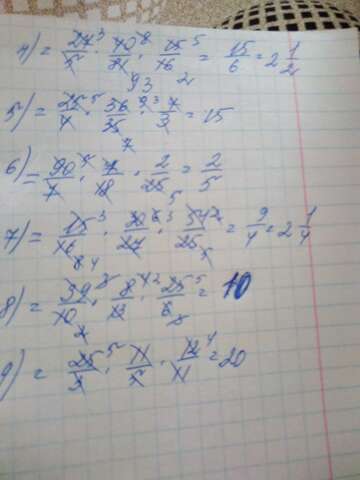 4) = 27/5 · 40/81 · 15/16 = 15/6 = 2 1/2
5) = 25/4 · 36/35 · 7/3 = 15
6) = 90/7 · 7/18 · 2/25 = 2/5
7) = 15/16 · 30/27 · 54/25 = 9/4 = 2 1/4
8) = 39/10 · 8/13 · 25/6 = 10
9) = 25/3 · 11/5 · 12/11 = 20